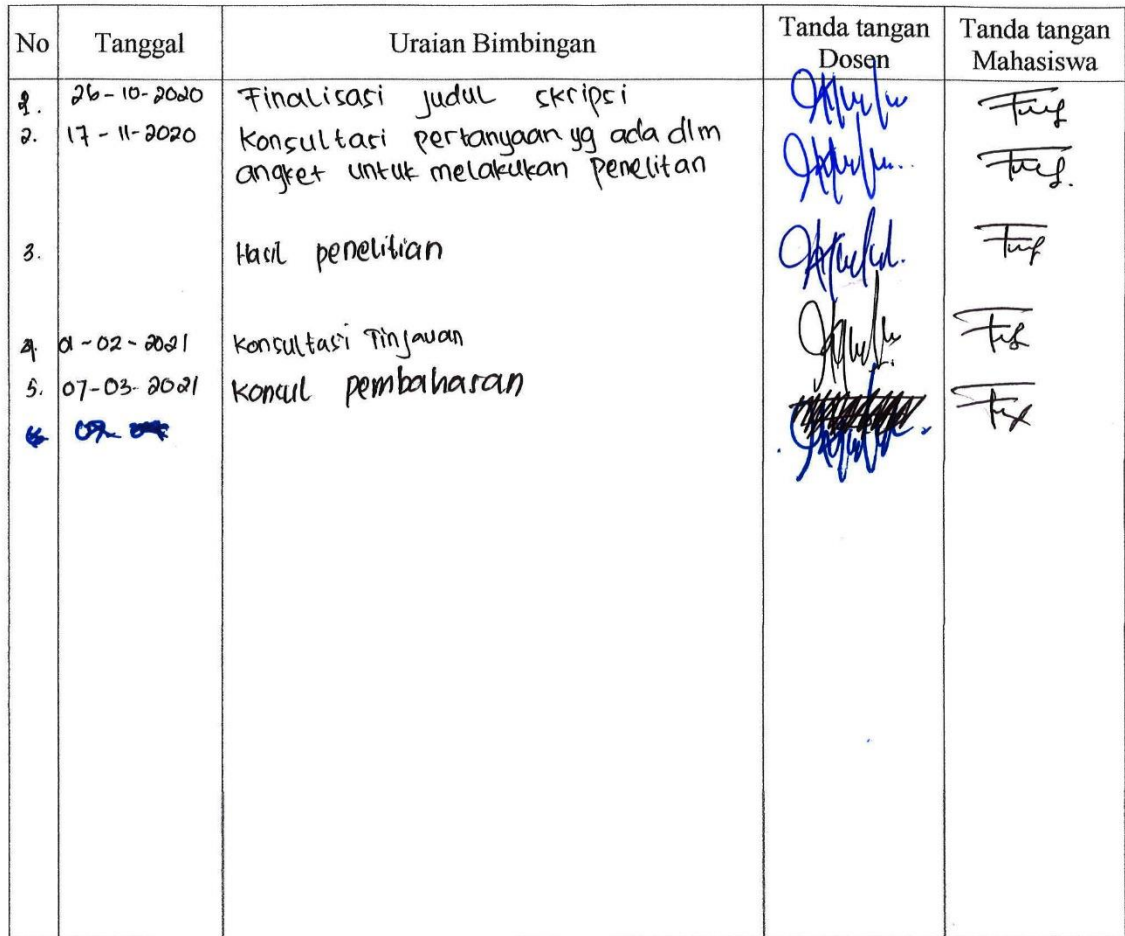 No Tanggal Uraian Bimbingan Tanda tangan Dosen Tanda tangan Mahasiswa
26-10-2020 Finalisasi judul skripsi
2. 17-11-2020 Konsultasi pertanyaan yg ada dlm
angket untuk melakukan Penelitan
3. Hasil penelitian
4. 01-02-2021 Konsultasi Tinjauan
5. 07-03-2021 Konsul pembahasan